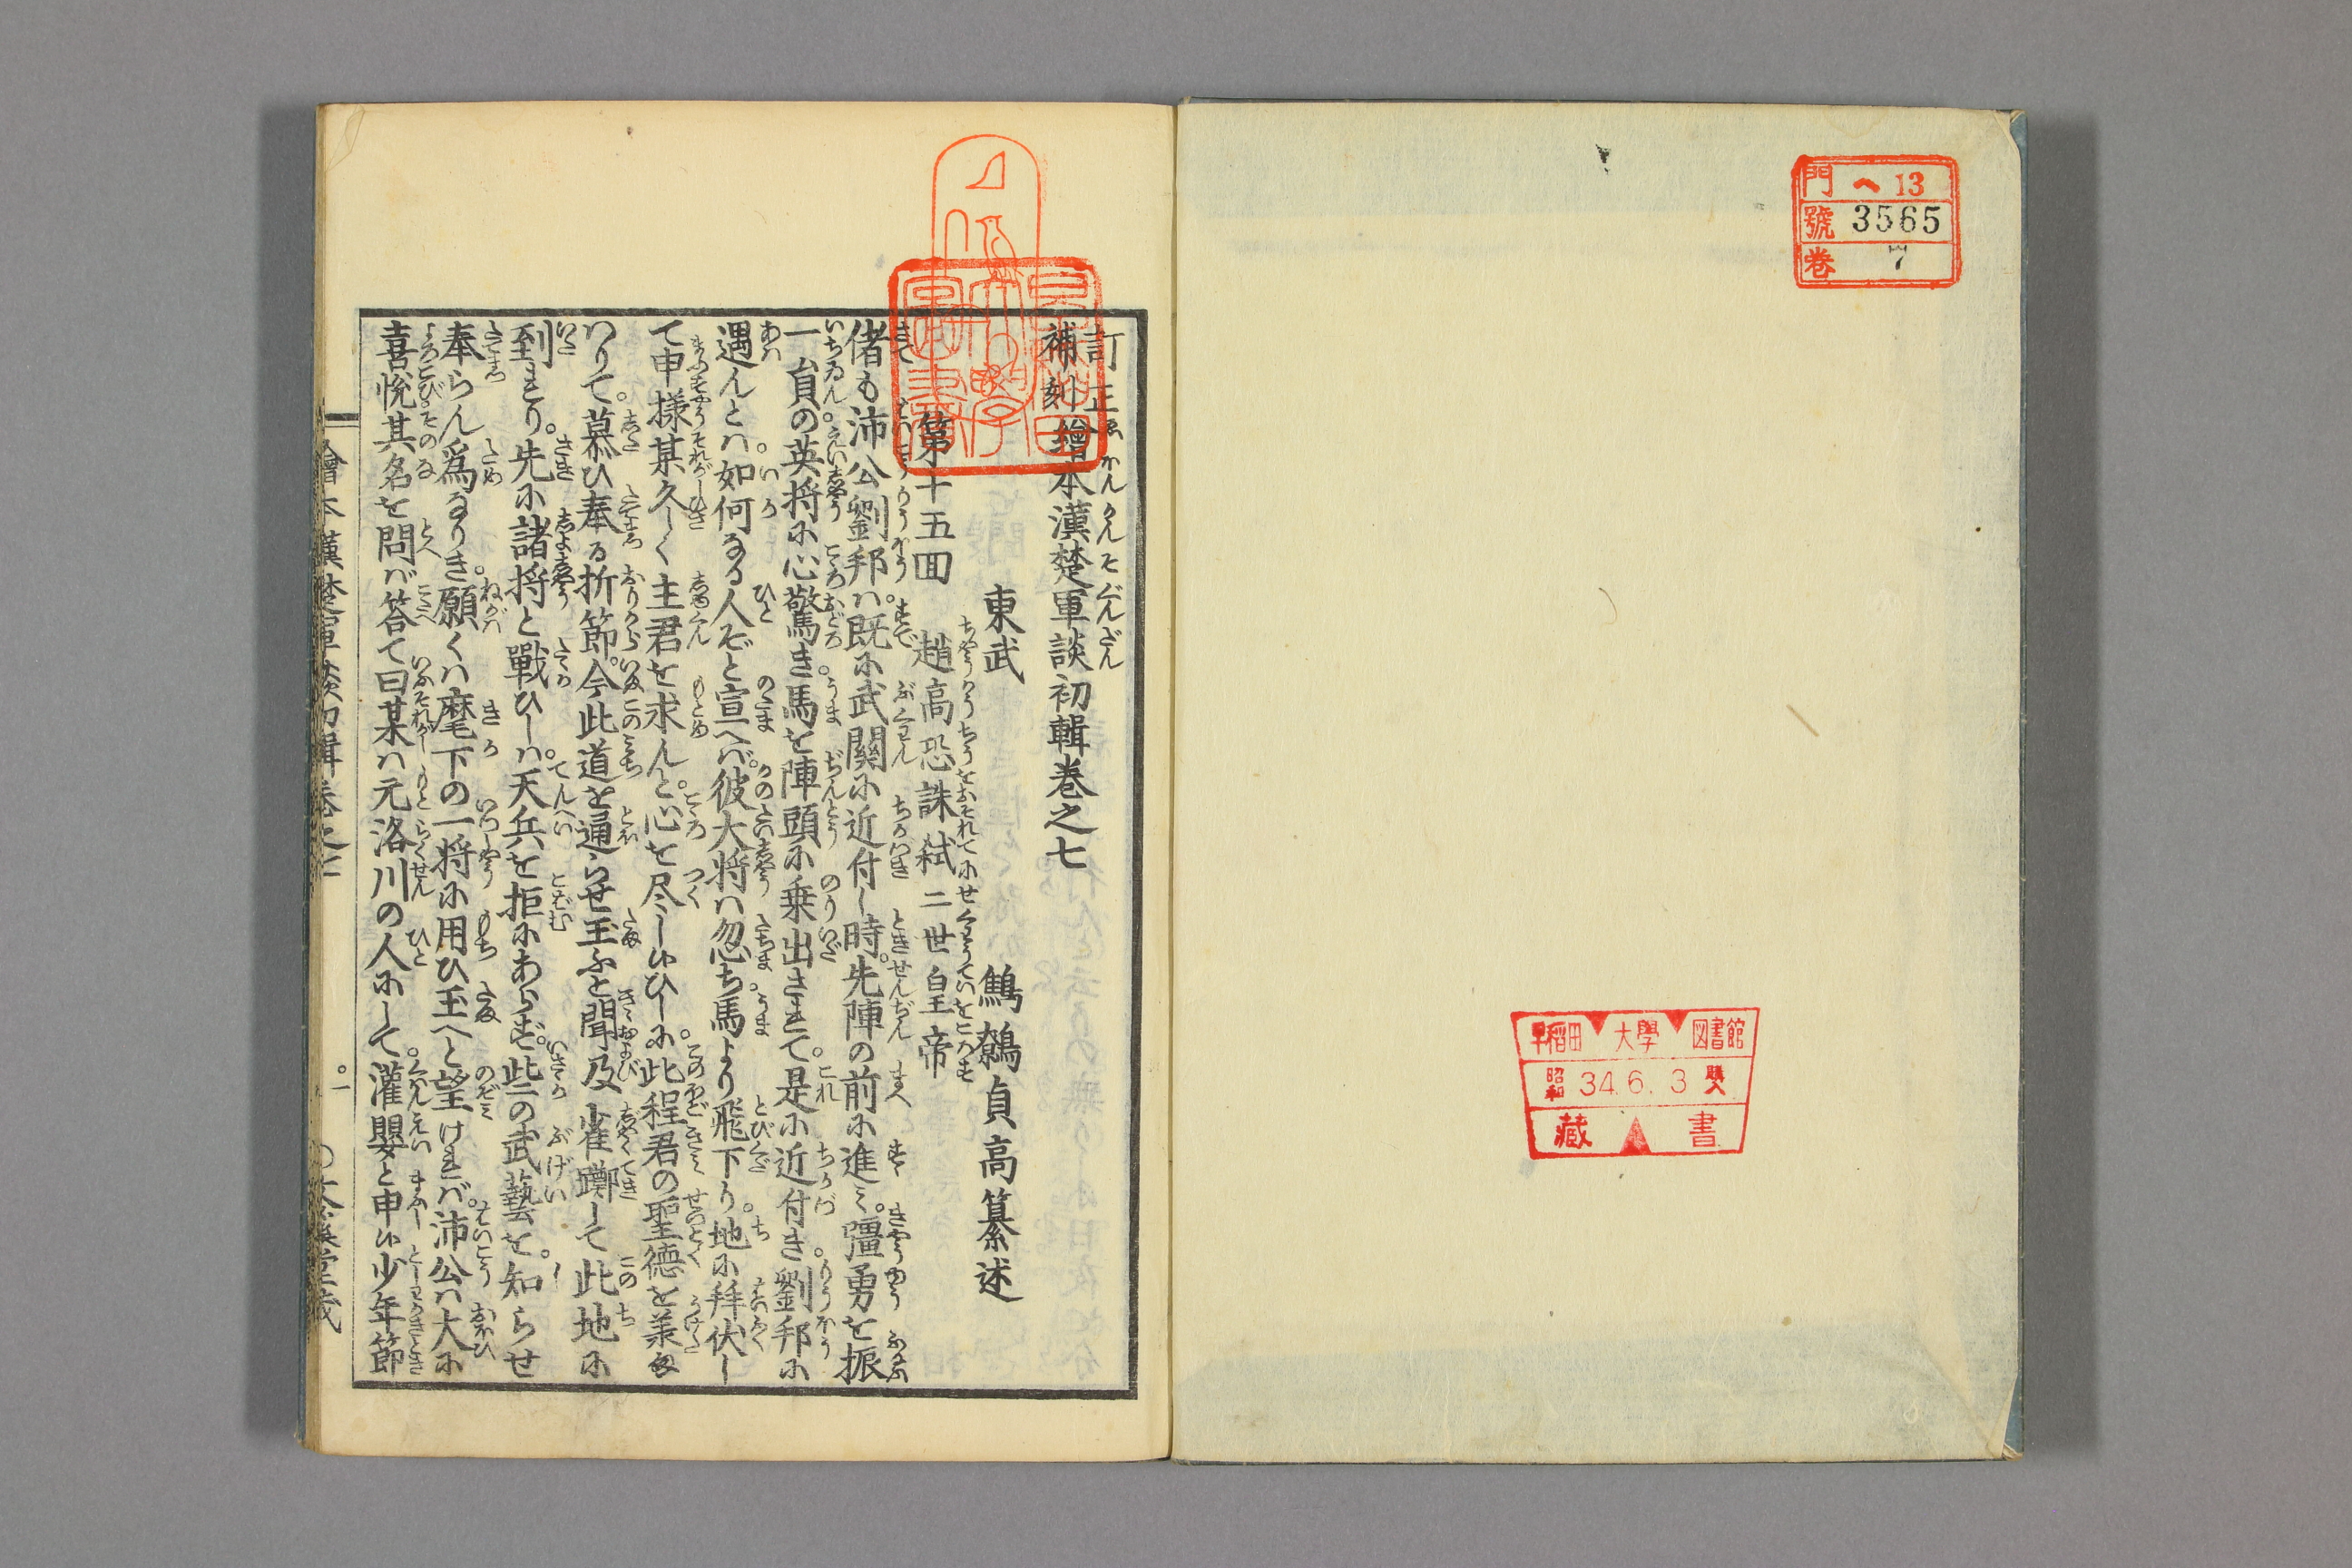 門 ヘ 13
號 3565
卷 7
早稻田大學図書館
昭和 34.6.3 購入
藏書
訂正
補刻繪本漢楚軍談初輯巻之七
東武 鷦鷯貞高纂述
第十五回 趙高恐誅弑二世皇帝
偖も沛公劉邦ハ既に武關に近付し時。先陣の前に進ミ。彊勇を振
一員の英将に心驚き。馬を陣頭に乗出さまて。是に近付き劉邦に
遇んとハ如何なる人ぞと宣へバ。彼大将ハ忽ち馬より飛下り。地に拜伏し
て申様某久しく主君を求んと。心を尽し候ひしに。此程君の聖徳を羕る
つりて。慕ひ奉る折節。今此道を通らせ玉ふと聞及び。雀躑して此地に
到まり。先に諸将と戰ひしハ。天兵を拒にあらず。些の武藝を。知らせ
奉らん為なりき。願くハ麾下の一将に用ひ玉へと望けまバ。沛公ハ大に
喜悦其名を問バ。答て曰某ハ元洛川の人にして。灌嬰と申候少年節
繪本漢楚軍談初輯巻之七 〇一